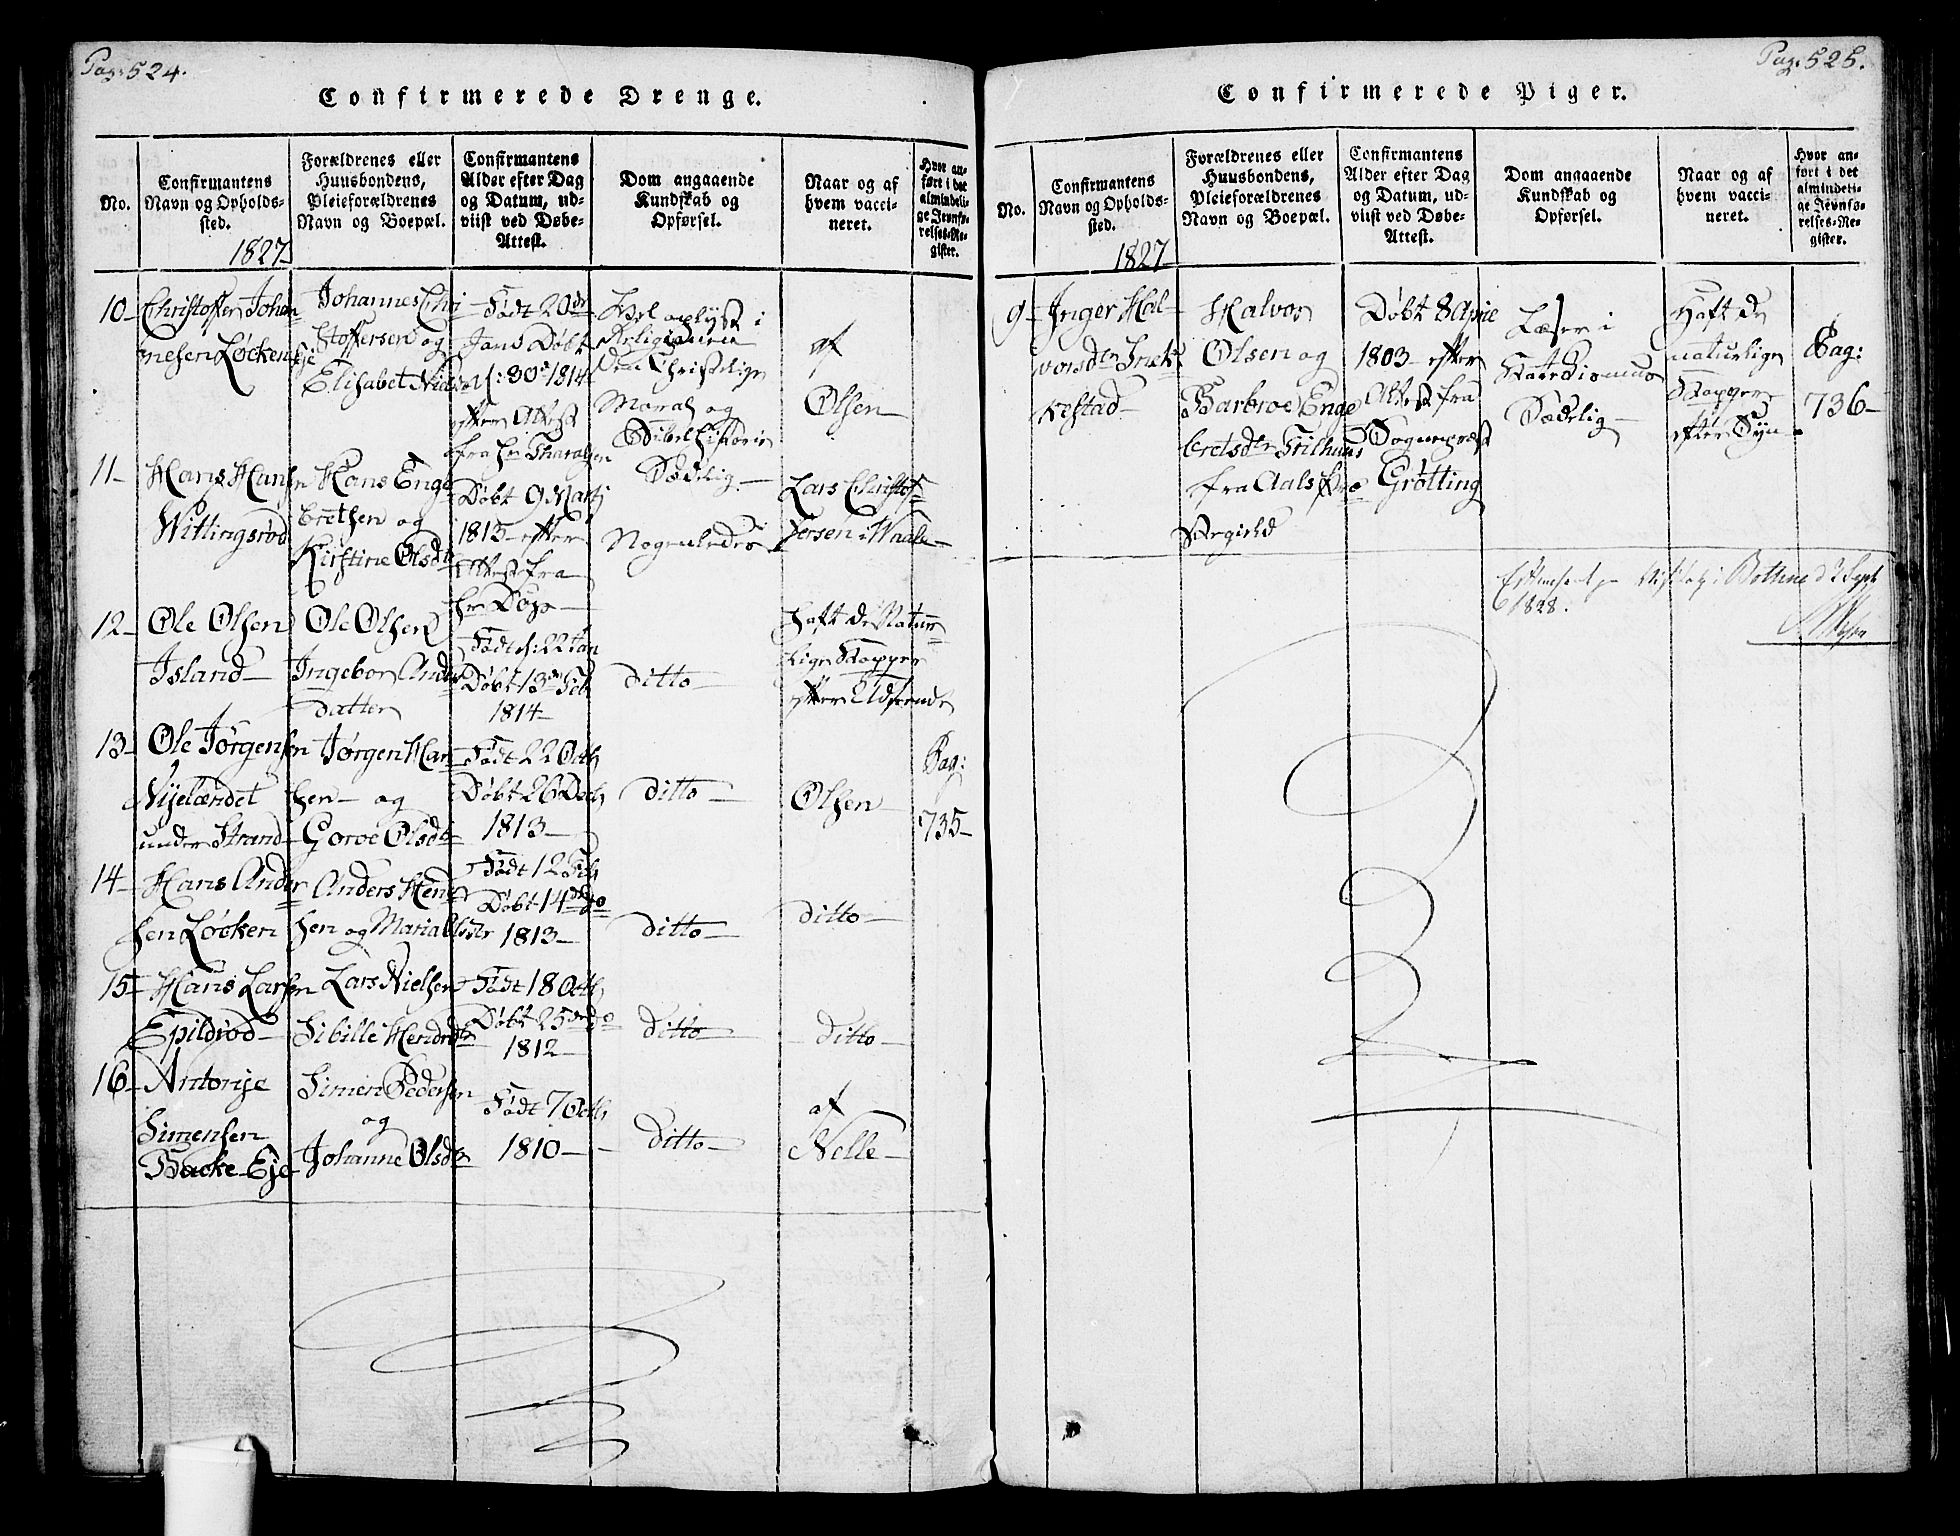 Pag: 524.
Confirmerede Drenge.
No.
Confirmantens
Navn og Opholds-
sted.
1827
Forældrenes eller
Huusbondens,
Pleieforældrenes
Navn og Boepæl.
Confirmantens
Alder efter Dag
og Datum, ud-
viist ved Døbe-
Attest.
Dom angaaende
Kundskab og
Opførsel.
Naar og af
hvem vacci-
neret.
Hvor an-
ført i det
almindeli-
ge Jevnfø-
relses-Re-
gister.
10-
Christoffer Johan
nesen Løcken
Eje
Johannes Chri
stoffersen og
Elisabet Niels
Født 20de
Janr Døbt
30d 1814
efter Attest
fra Hr
Vel oplyst i
Religionen
Den Christelige
Moral og
Bibel Historie
Sædelig-
af
Olsen
11-
Hans Hansen
Wittingsrød
Hans Enge
bretsen og
Kirstine Olsdtr
Døbt 9 Martj
1813 efter
Attest fra
Hr
Nogenledes
Lars Christof-
fersen i Waale-
12-
Ole Olsen
Island
Ole Olsen
Ingebor Anders
datter
Født d: 22 Jan
Døbt 13de Feb
1814-
ditto-
haft de Natur-
lige Kopper
efter Udseende
13-
Ole Jørgensen
Nyelændet
under Strand
Jørgen Han
sen- og
Goroe Olsdtr
Født 22 Octb
Døbt 26 Decb
1813-
ditto-
Olsen
Pag:
735-
14-
Hans Ander
sen Løcken
Anders Hend
sen og Maria Olsdtr
Født 12 Feb
Døbt 14de do
1813-
ditto-
ditto-
15-
Hans Larsen
Epildrød
Lars Nielsen
Sibille Hendrdtr
Født 18 Octb
Døbt 25de do
1812-
ditto-
ditto-
16-
Antonje
Simensen
Backe Eje
Simen Pedersen
og
Johanne Olsdtr
Født 7 Octb
1810-
ditto-
af
Nelle-
Pag. 525.
Confirmerede Piger.
No.
Confirmantens
Navn og Opholds-
sted.
1827
Forældrenes eller
Huusbondens,
Pleieforældrenes
Navn og Boepæl.
Confirmantens
Alder efter Dag
og Datum, ud-
viist ved Døbe-
Attest.
Dom angaaende
Kundskab og
Opførsel.
Naar og af
hvem vacci-
neret.
Hvor an-
ført i det
almindeli-
ge Jevnfø-
relses-Re-
gister.
9-
Inger Hal-
vorsdtr
kestad-
Halvor
Olsen og
Barbroe Enge
bretsdtr
fra Aals
Døbt 8 Aprie
1803- efter
Attest fra
Sognepræst
Grøtting
Læser i
Katechismus
Sædelig-
Haft de
naturlige
Kopper
efter Syn-
Pag:
736-
d 2 Sept
1828.